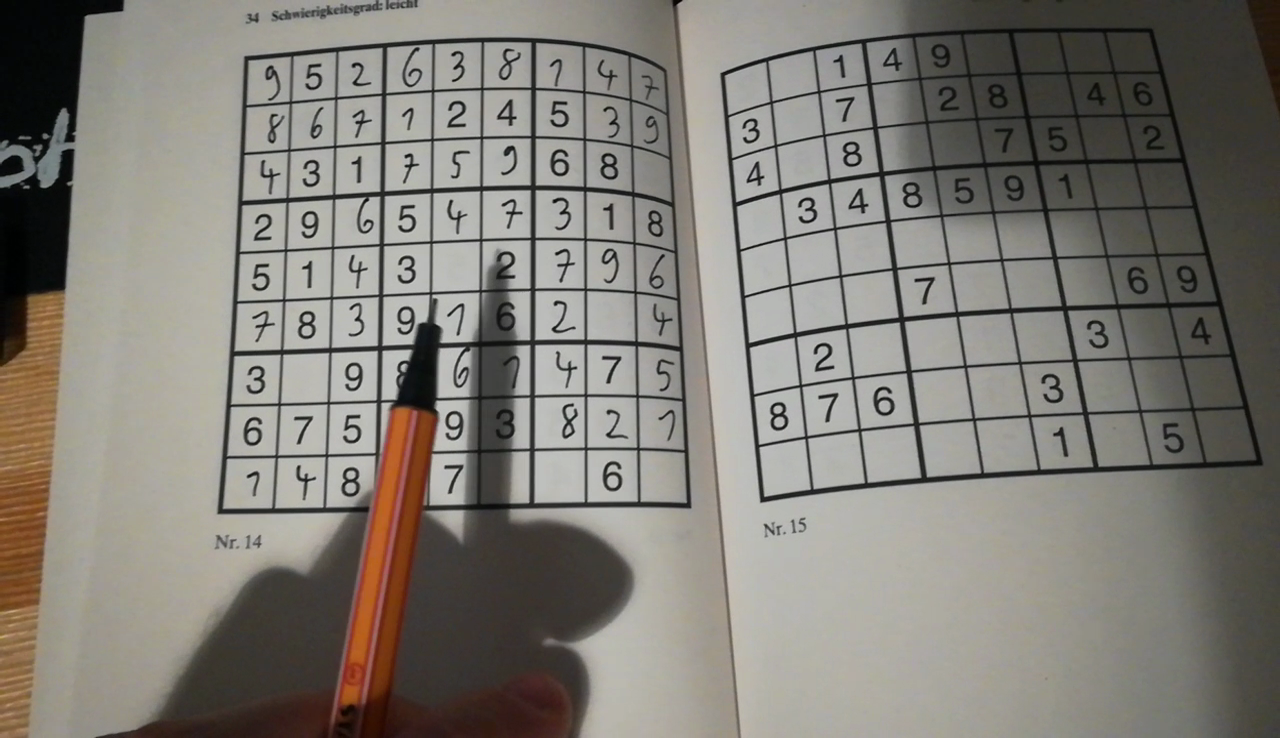 34 Schwierigkeitsgrad: leicht
9 5 2 6 3 8 1 4 7
8 6 7 1 2 4 5 3 9
4 3 1 7 5 9 6 8
2 9 6 5 4 7 3 1 8
5 1 4 3 2 7 9 6
7 8 3 9 1 6 2 4
3 9 8 6 1 4 7 5
6 7 5 9 3 8 2 1
1 4 8 7 6
Nr. 14
1 4 9
3 7 2 8 4 6
4 8 7 5 2
3 4 8 5 9 1
7 6 9
2 3 4
8 7 6 3
1 5
Nr. 15